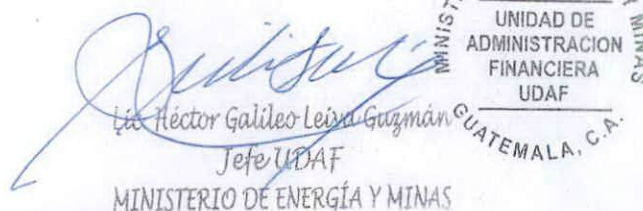 UNIDAD DE
ADMINISTRACION
FINANCIERA
UDAF
GUATEMALA, C.A.
Lic. Héctor Galileo Leiva Guzmán
Jefe UDAF
MINISTERIO DE ENERGÍA Y MINAS